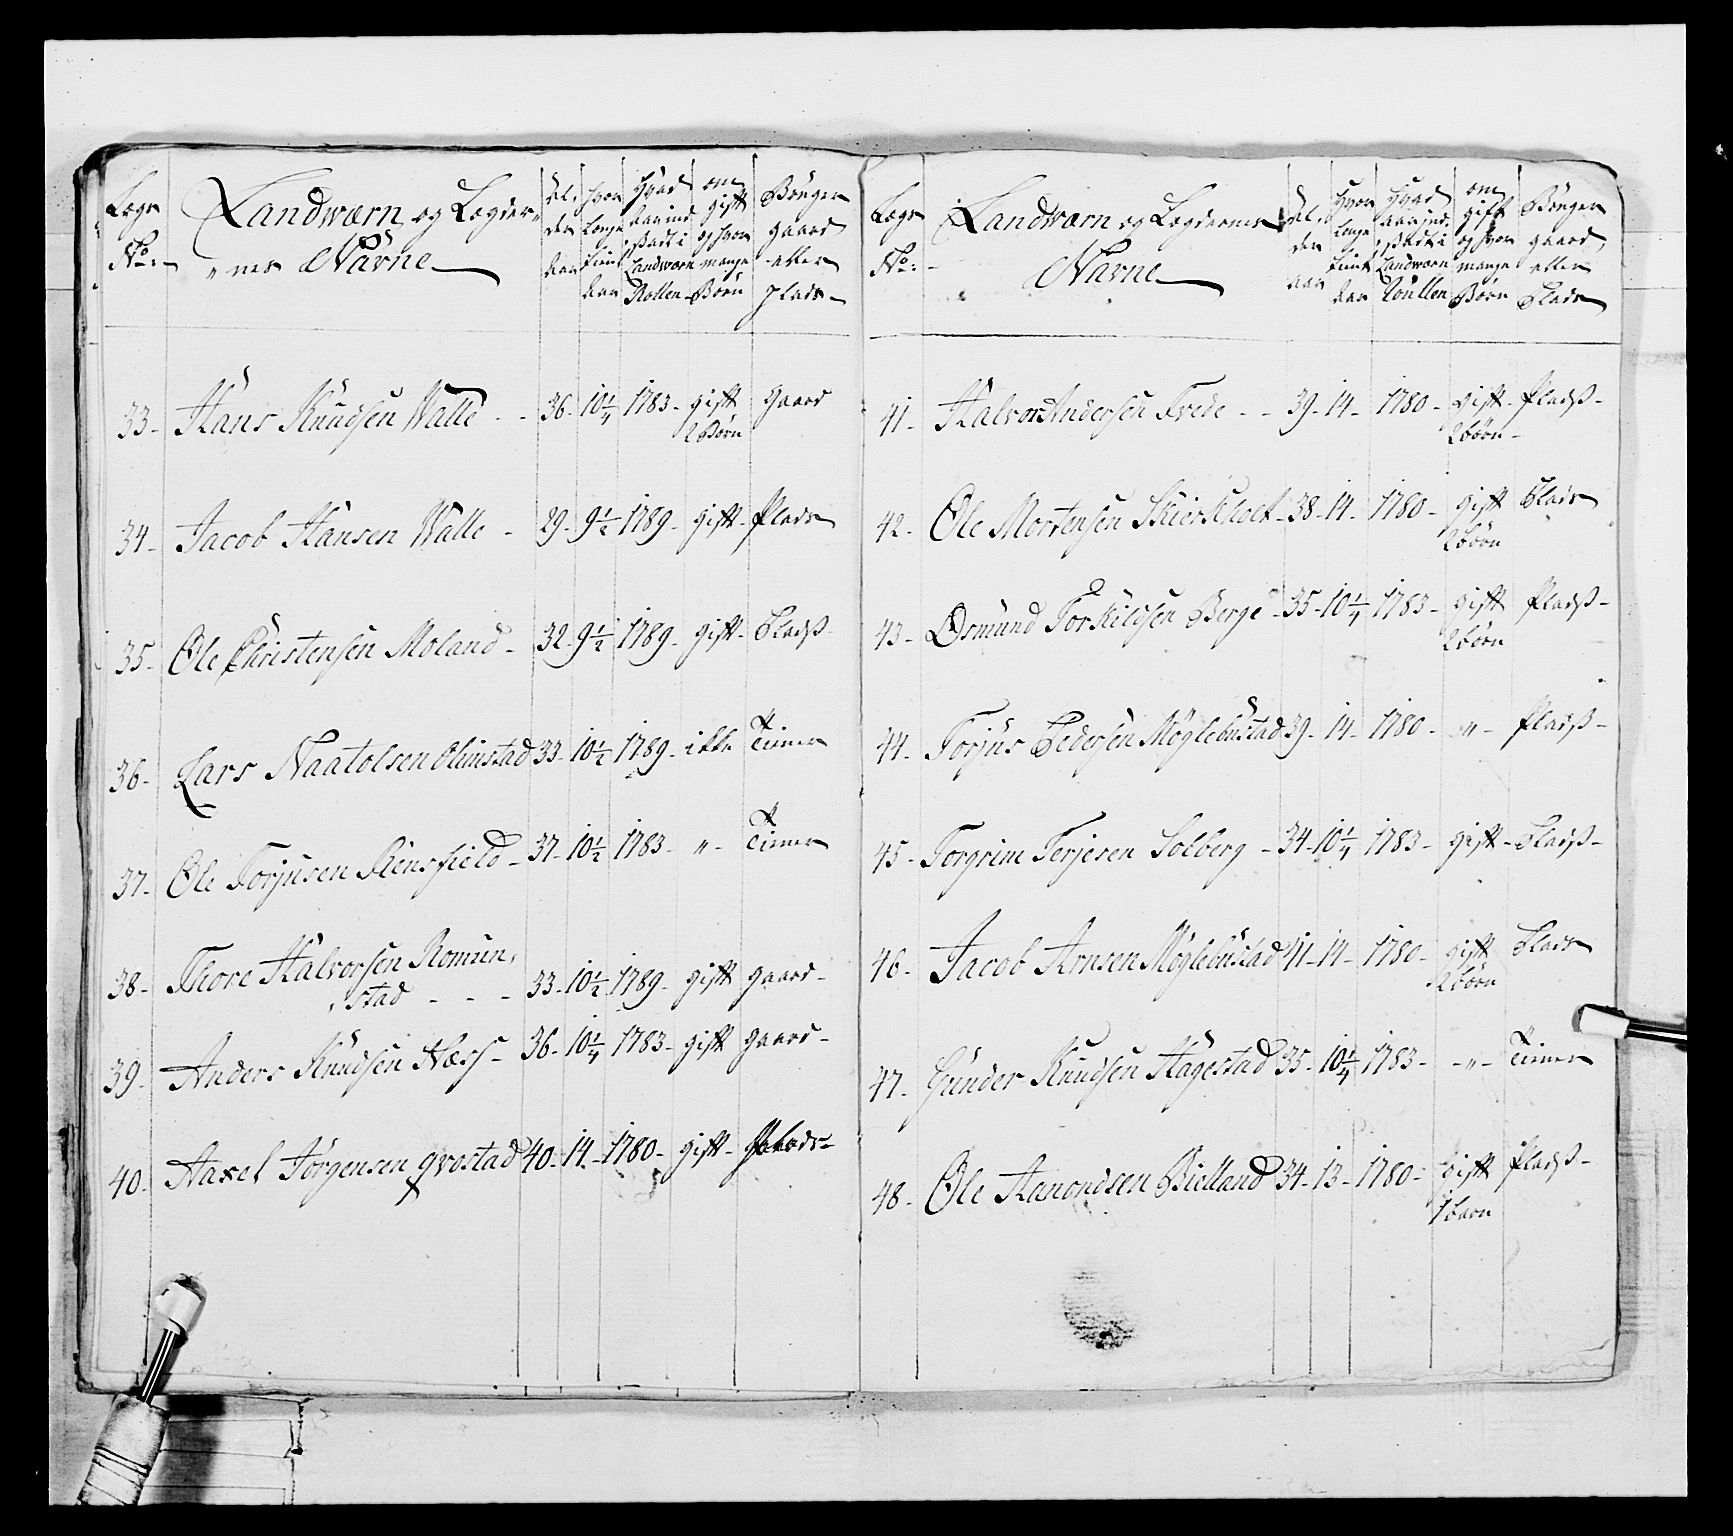 Lægs No:
Landwærn og Lægder-
nes Navne
Hvor Længe tient Aar
Hvad Aar ind- i Landwærn Rollen
om gift og hvor mange Børn
Bønger gaard eller Plads
33 - Hans Knudsen Walle - - 36 - 10 1/4 1783 - gift 2 Børn Gaard
34 - Jacob Hansen Walle - 29 - 9 1/2 1789 - gift - Plads
35 - Ole Christensen Moland - 32 - 9 1/2 1789 - gift - Pladß -
36 - Lars Naatolsen Olimstad 33 - 10 1/2 1789 - ikke Tiener
37 - Ole Torjusen Riensfield - 37 - 10 1/2 1783 - " - Tiener
38 - Thore Halvorsen Romun-
stad - - - 33 - 10 1/2 1789 - gift gaard -
39 - Anders Knudsen Næss - 36 - 10 1/4 1783 - gift gaard -
40 - Aaxel Jörgensen qvostad 40 - 14 - 1780 - gift -
Lægs No: -
Landwærn og Lægdernes
Navne
Hvor Længe tient Aar
Hvad Aar ind- i Landwærn Roullen
om gift og hvor mange Børn
Bønger gaard eller Plads
41 - Halvor Andersen Trede - - 39 - 14 - 1780 - gift - Pladß -
2 børn -
42 - Ole Mortensen Skierkholt - 38 - 14 - 1780 - gift Plads
2 børn
43 - Osmund Torkildsen Berge - 35 - 10 1/4 1783 - gift Pladß -
2 børn
44 - Torjus Pedersen Möglebustad 39 - 14 - 1780 - " - Pladß -
45 - Torgrim Terjesen Solberg - 34 - 10 1/4 1783 - gift - Pladß -
46 - Jacob Arnsen Möglebustad 41 - 14 - 1780 - gift Plads
2 børn
47 - Gunder Knudsen Hagestad 35 - 10 1/4 1783 - - " - Tiener
48 - Ole Aanondsen Bielland 34 - 13 - 1780 - gift Pladß -
1 barn